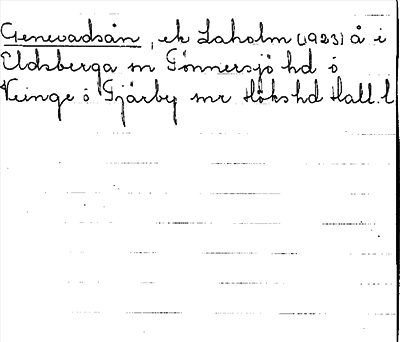 Genevadsån, ek Laholm (1923) å i
Eldsberga sn Tönnersjö hd ö
Veinge o Tjärby snr Höks hd Hall. l